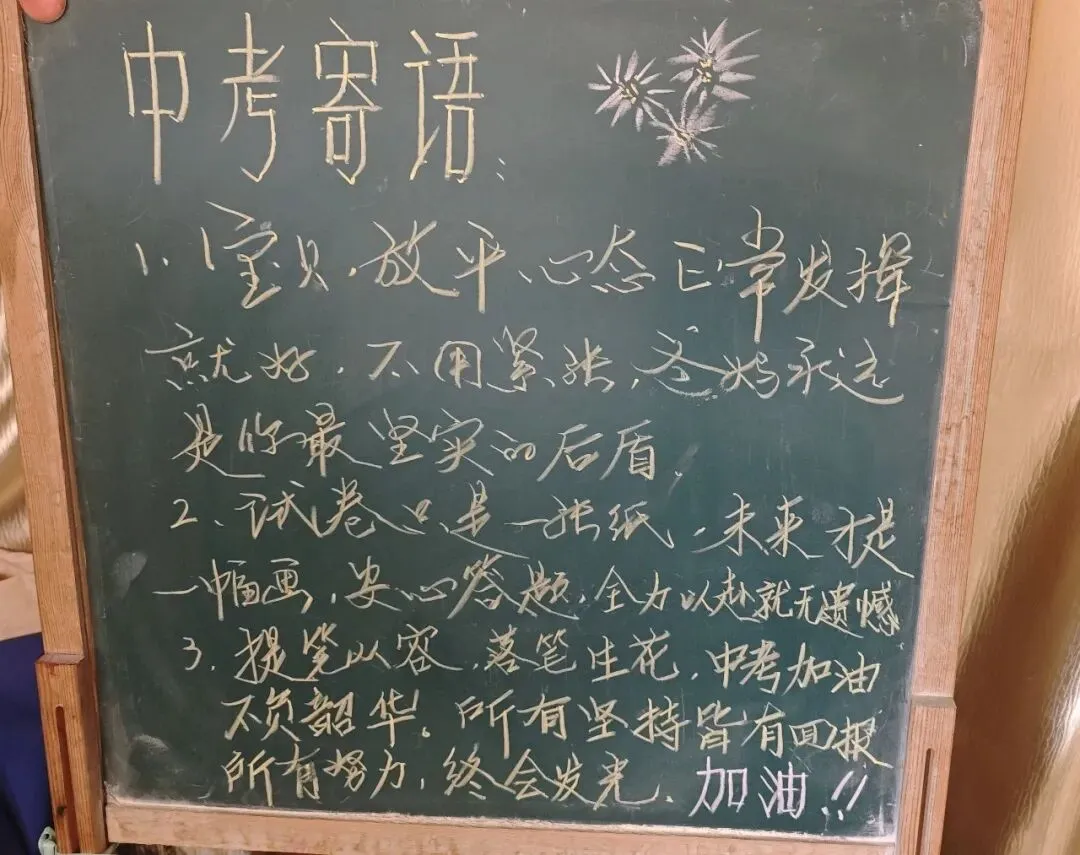 中考寄语:
1、宝贝,放平心态正常发挥
就好,不用紧张,爸妈永远
是你最坚实的后盾.
2、试卷只是一张纸,未来才是
一幅画,安心答题,全力以赴就无遗憾
3、提笔从容,落笔生花,中考加油
不负韶华。所有坚持皆有回报
所有努力,终会发光.加油!!